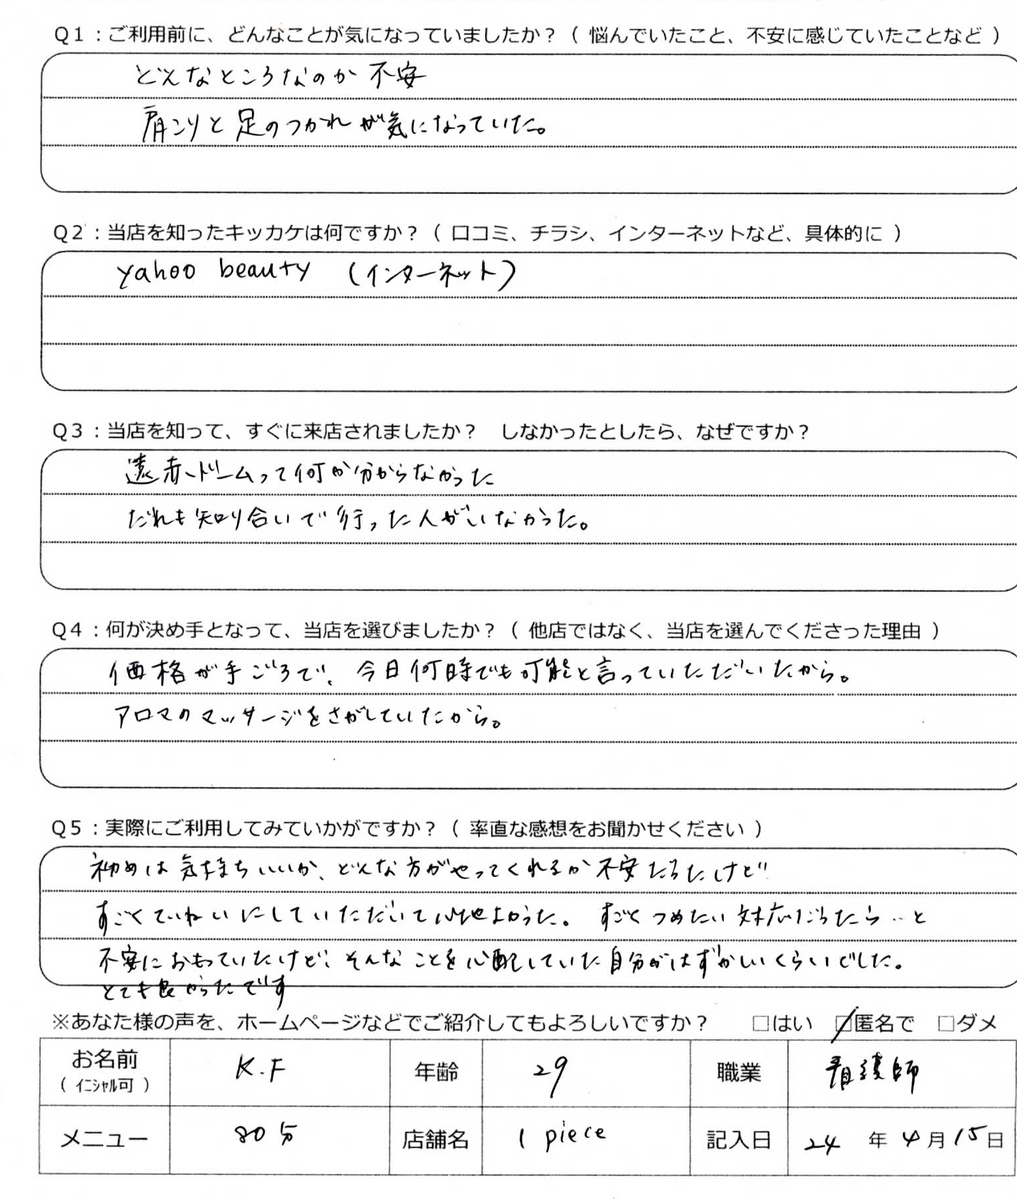 Q1：ご利用前に、どんなことが気になっていましたか？（ 悩んでいたこと、不安に感じていたことなど ）
どんなところなのか 不安
肩こりと 足のつかれが気になっていた。
Q2：当店を知ったキッカケは何ですか？（ 口コミ、チラシ、インターネットなど、具体的に ）
yahoo beauty （インターネット）
Q3：当店を知って、すぐに来店されましたか？　しなかったとしたら、なぜですか？
遠赤ドームって何か分からなかった
だれも知り合いで行った人がいなかった。
Q4：何が決め手となって、当店を選びましたか？（ 他店ではなく、当店を選んでくださった理由 ）
価格が手ごろで、今日何時でも可能と言っていただいたから。
アロマのマッサージをさがしていたから。
Q5：実際にご利用してみていかがですか？（ 率直な感想をお聞かせください ）
初めは気持ちいいか、どんな方がやってくれるか不安だったけど
すごくていねいにしていただいて心地よかった。 すごくつめたい対応だったら…と
不安におもっていたけど、そんなことを心配していた自分がはずかしいくらいでした。
とても良かったです
※あなた様の声を、ホームページなどでご紹介してもよろしいですか？　□はい　☑匿名で　□ダメ
お名前（ｲﾆｼｬﾙ可） K.F 年齢 29 職業 看護師
メニュー 80分 店舗名 1 piece 記入日 24 年 4 月 15 日